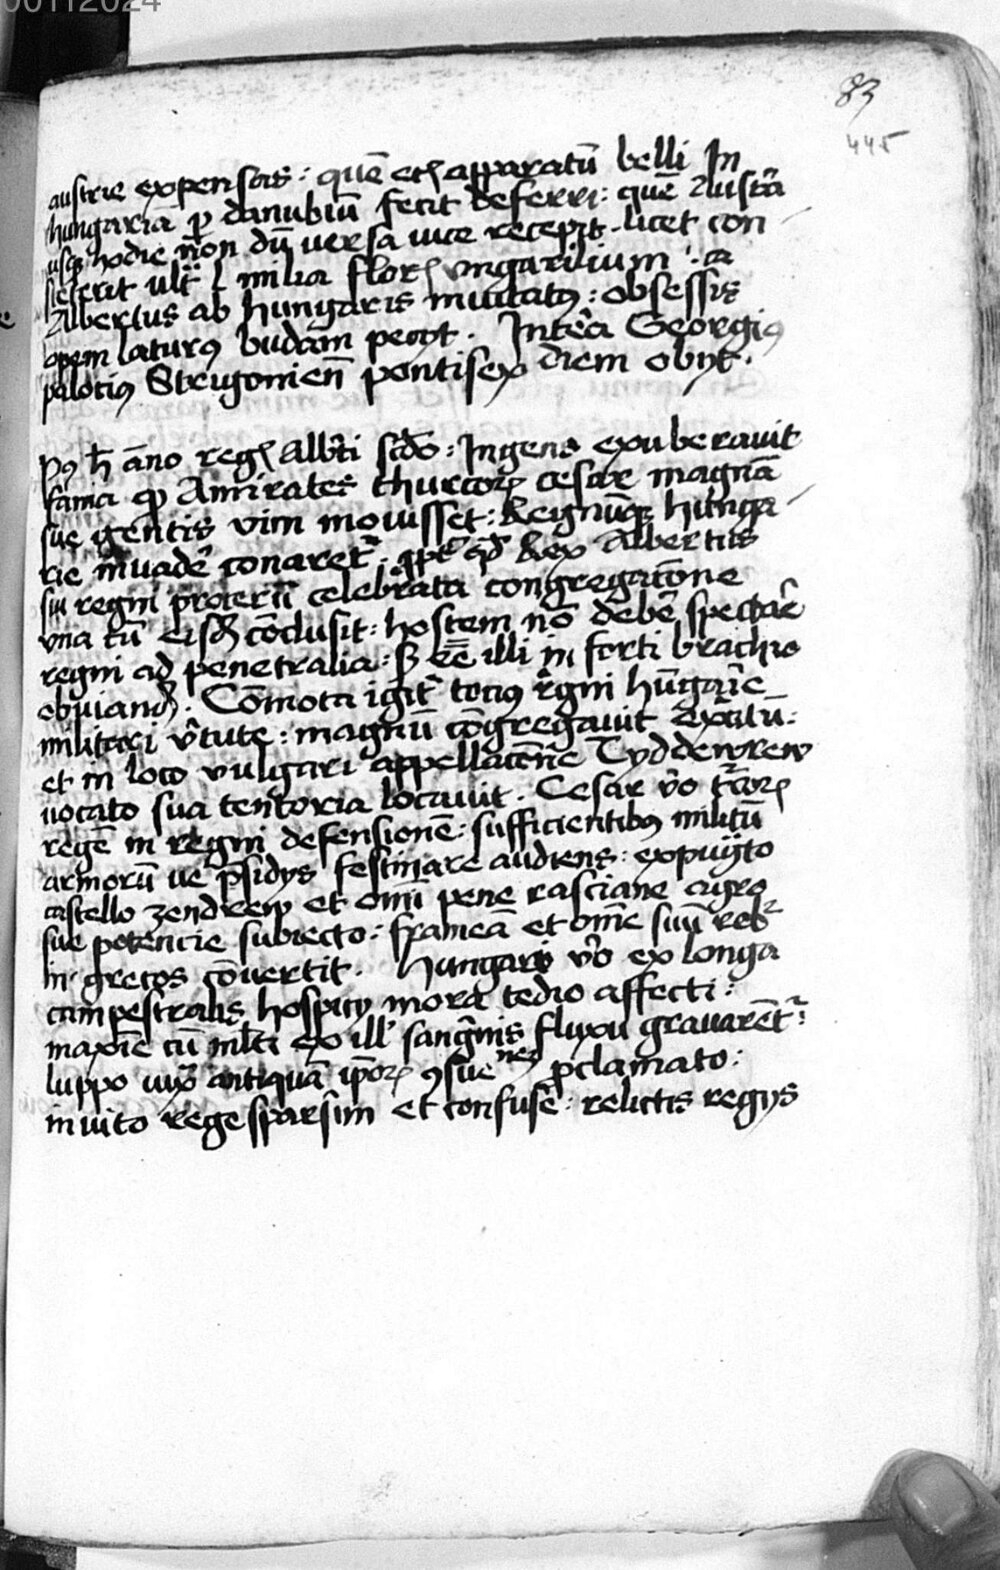 00112024
83
445
austrie expensas : quē etꝭ apparatū belli In
hungariā ꝑ danubiū fecit deferri : quē Austria
usqꝫ hodie non dū versa vice recepit · licet con
steterit ultᵃ l milia florꝭ ungarilium
Albertus ab hungaris invitatꝰ : obsessis
opem laturꝰ budam pecyt · Interea Georgiꝰ
palociꝰ Strigonien̄ pontifex diem obyt ·
Pꝰ h̄ āno regꝭ Alb̄ti sc̄do : Ingens exuberavit
fama ꝙ Amirates thurcorꝝ cesar magnā
sue gentis vim movisset : Regnūqꝫ hunga
rie invadē conaretᷣ · qd̄ Rex Albertus
sui regni procerū celebrata congregatōne
una cū eisdꝫ cōclusit : hostem nō debē spectare
regni ad penetralia : sꝫ illi in forti brachio
obviandꝫ · Cōmota igitᷣ tociꝰ regni hūgarie
militari v̄tute : magnū cōgregavit exc̄itū :
et in loco vulgari appellatōne Tyddewrew
vocato sua tentoria locavit · Cesar v̄o
regē in regni defensionē : sufficientibꝰ militū
armorū ve p̄sidys festinare audiens : expugͣto
castello zendrew et om̄i pene rasciane agro
sue potencie subiecto : frameā et om̄e suū robꝛ
in grecos cōvertit · Hungari v̄o ex longa
campestralis hospicy mora tedio affecti :
maxīe cū ml̄ti ex ill' sangͥnis fluxu gravarētᷣ :
luppo iuxᵃ antiquā ip̄orꝝ ꝯsuenēꝫ ꝓclamato :
invito rege sparsim et confuse : relictis regys